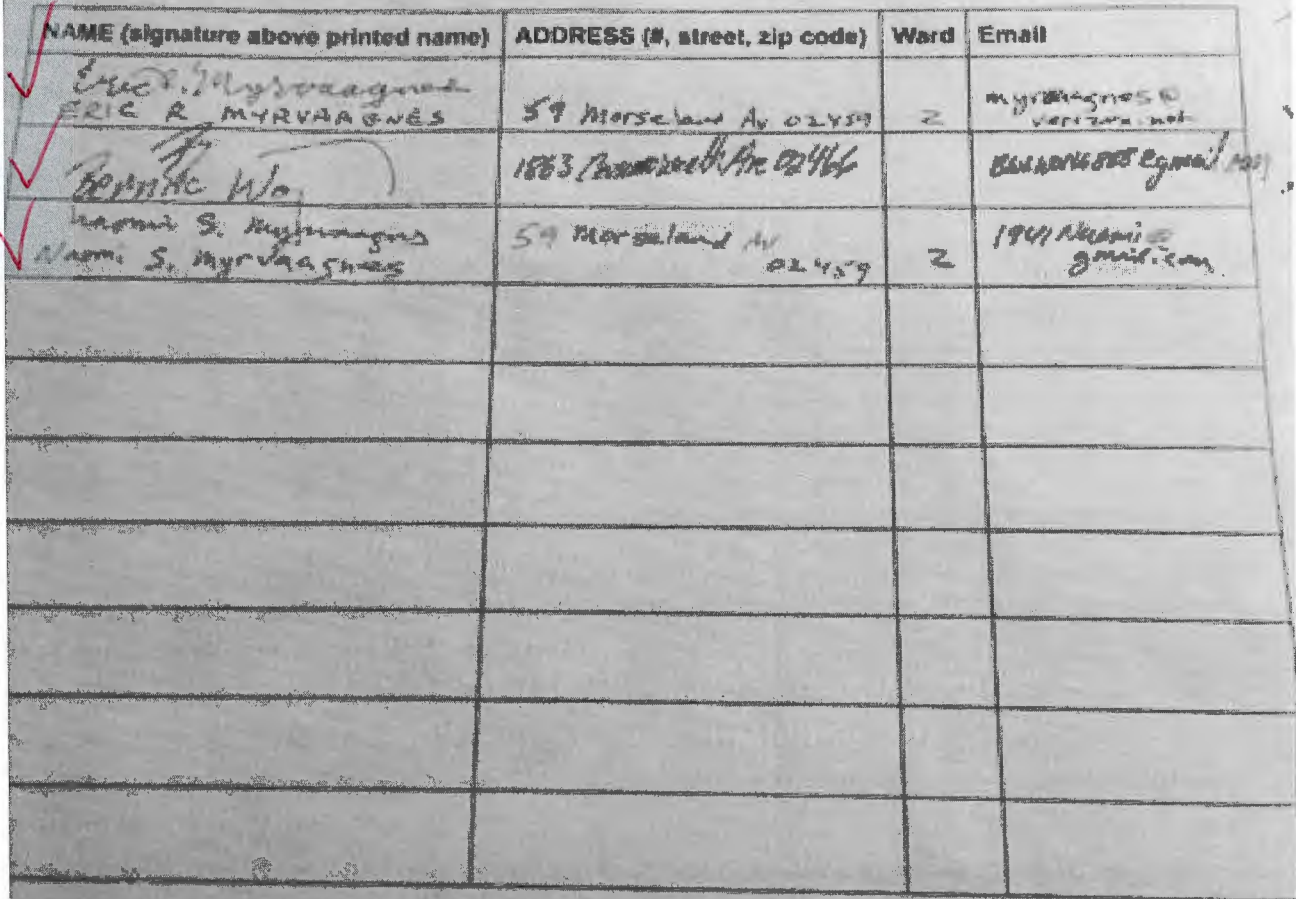 NAME (signature above printed name) ADDRESS (#, street, zip code) Ward Email
Eric R. Myrvaagnes
ERIC R MYRVAAGNES 59 Morseland Av 02459 2 myrvaagnes@
verizon.net
Bernice Wo 1863 Ave 02466 @gmail
Naomi S. Myrvaagnes
Naomi S. Myrvaagnes 59 Morseland Av
02459 2 1941Naomi@
gmail.com